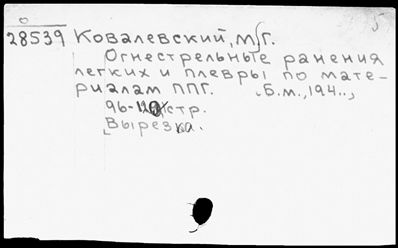 5
28539 Ковалевский, М.Г.
Огнестрельные ранения
легких и плевры по мате-
риалам ППГ. Б.м., 194..,
96- стр.
Вырезка.